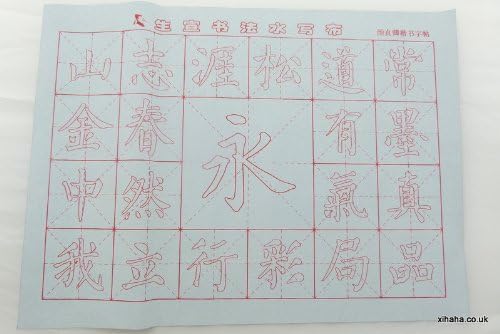 生宣书法水写布
颜真卿楷书字帖
山志涯松道常
金春永有墨
中然氣真
我立行彩局品
xihaha.co.uk